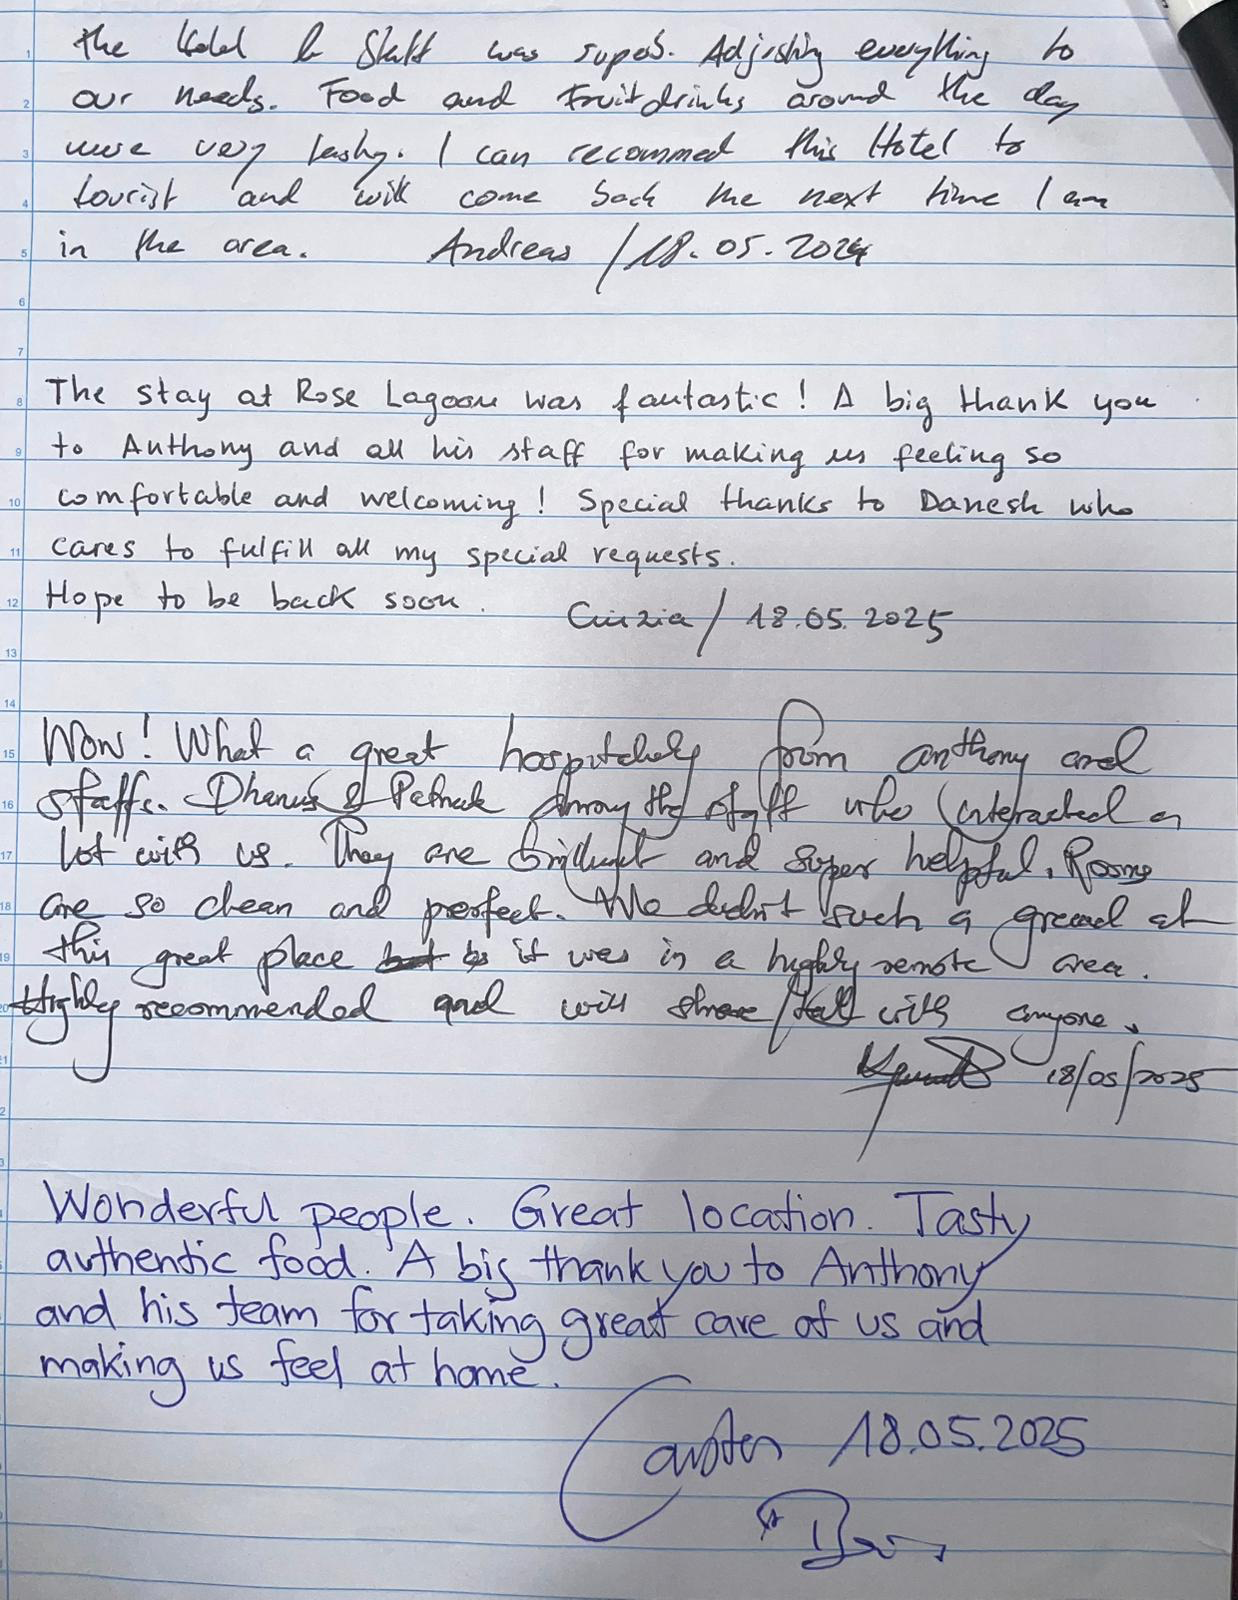 the Hotel & Staff was superb. Adjusting everything to
our needs. Food and Fruitdrinks around the day
were very tasty. I can recommed this Hotel to
tourist and will come back the next time I am
in the area. Andreas / 18.05.2024
The stay at Rose Lagoon was fantastic! A big thank you
to Anthony and all his staff for making us feeling so
comfortable and welcoming! Special thanks to Danesh who
cares to fulfill all my special requests.
Hope to be back soon. Cinzia / 18.05.2025
Wow! What a great hospitality from anthony and
staffs. & Patrick among the staff who interacted a
lot with us. They are brilliant and super helpful. Rooms
are so clean and perfect. We didn't such a at
this great place it was in a highly remote area.
Highly recommended and will share/tell with anyone.
18/05/2025
Wonderful people. Great location. Tasty
authentic food. A big thank you to Anthony
and his team for taking great care of us and
making us feel at home.
Carsten 18.05.2025